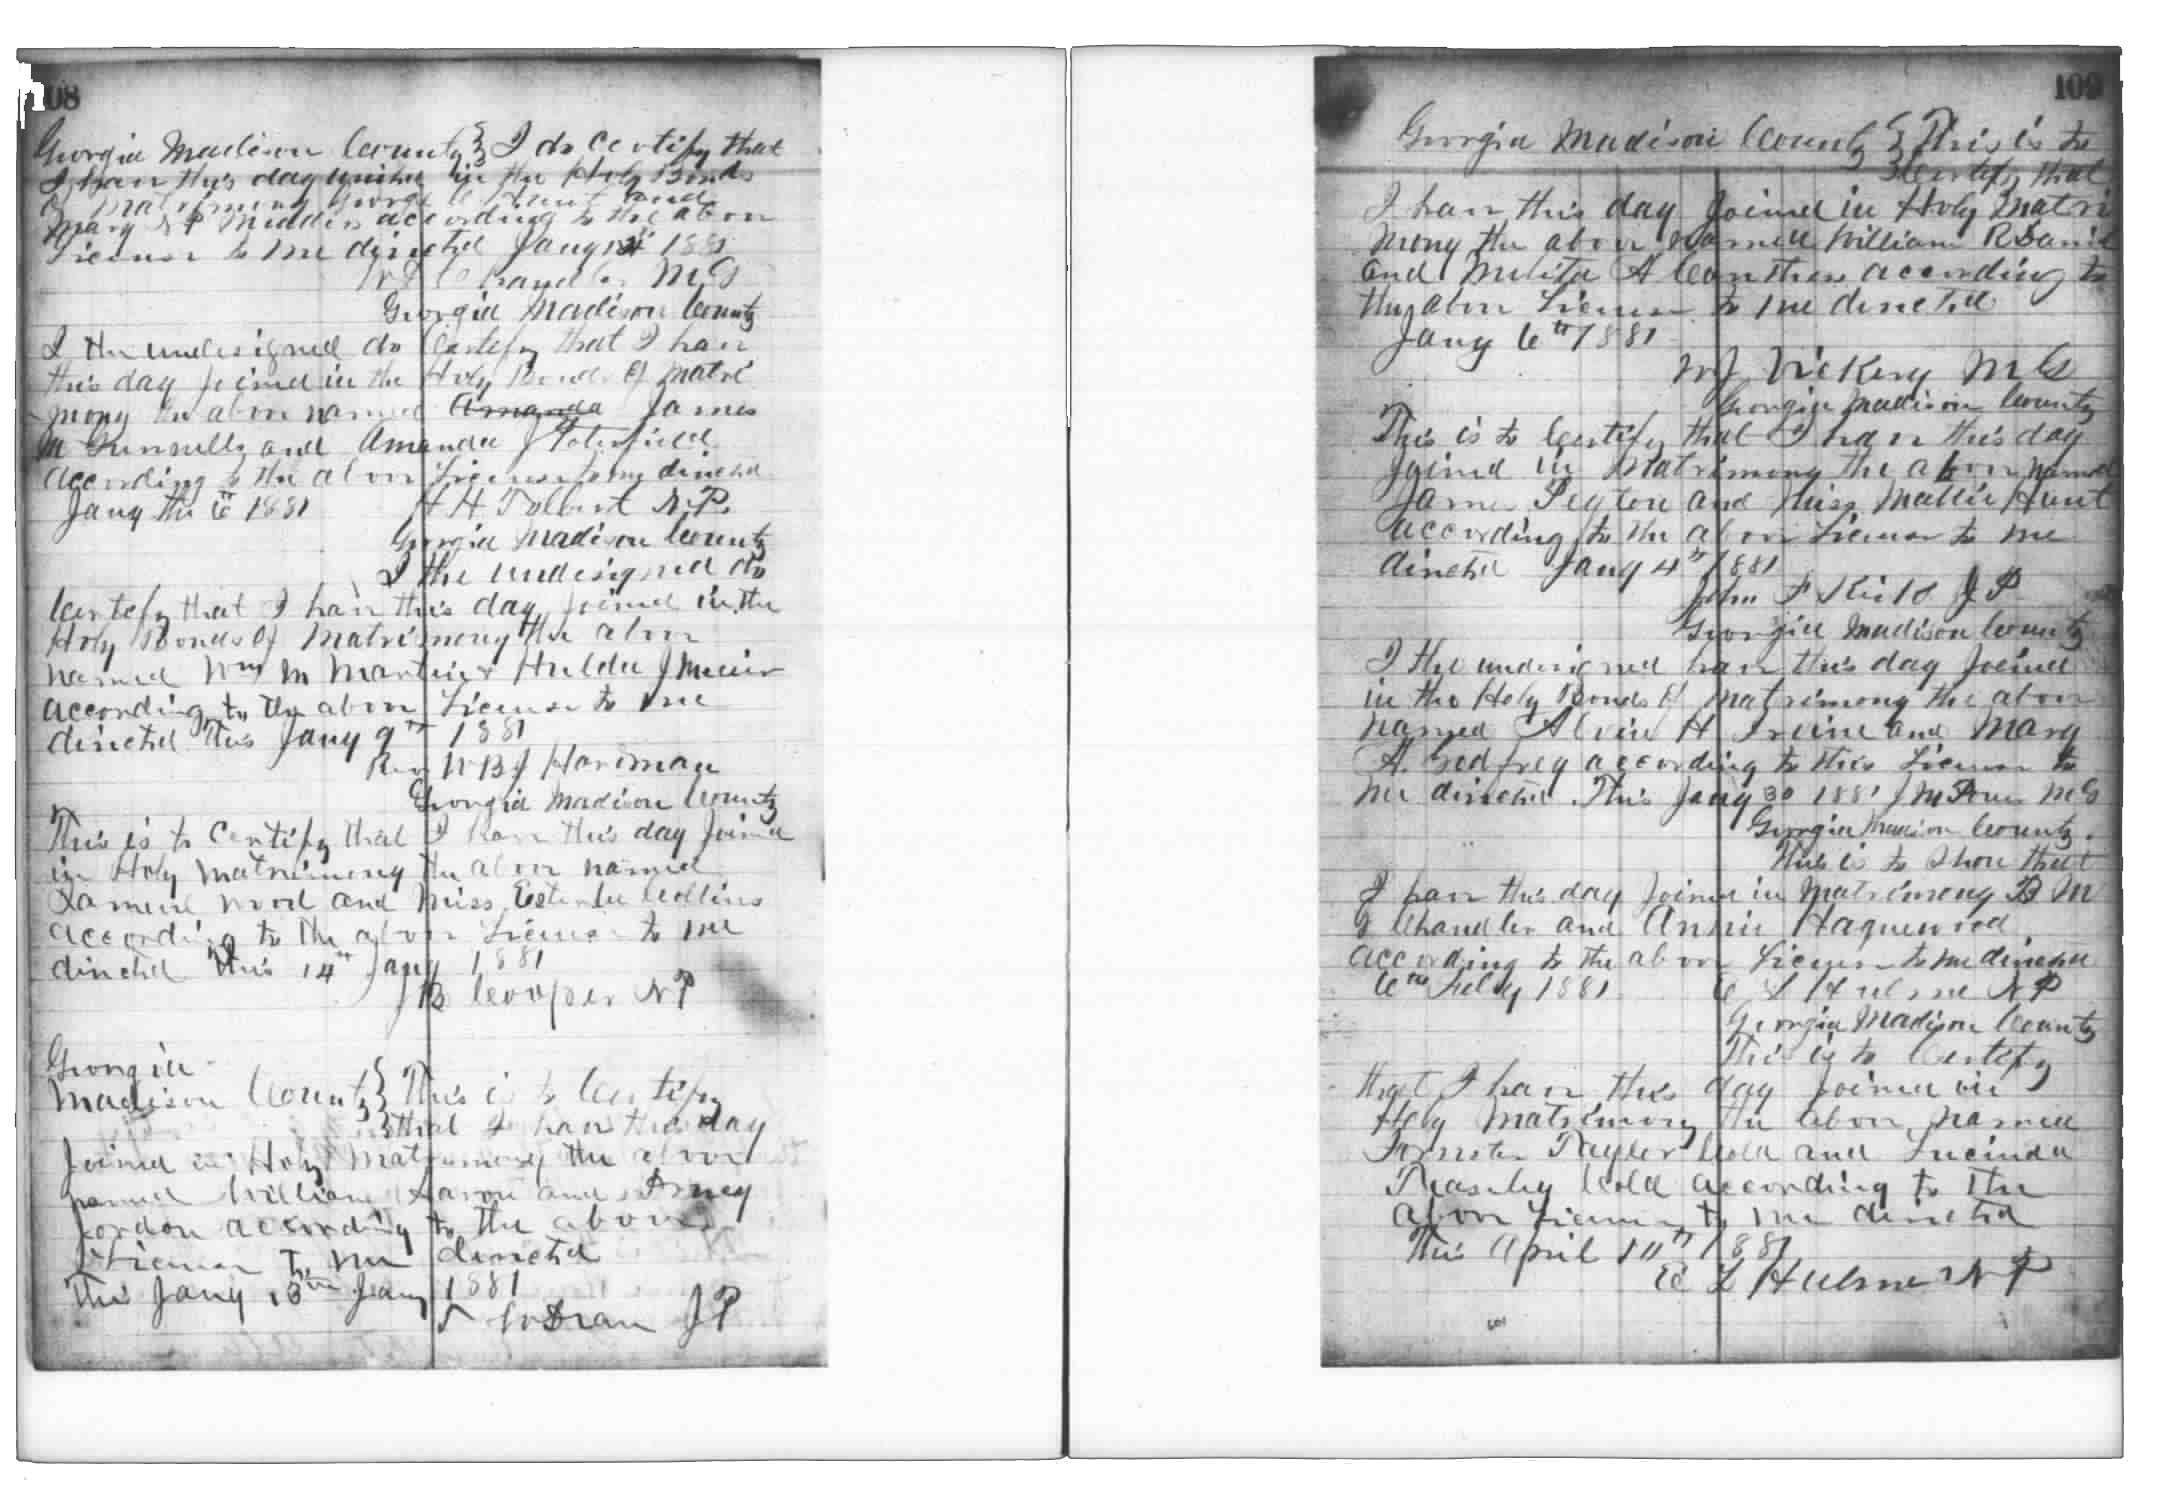 108
Georgia Madison County } I do Certify that
I hav this day united in the Holy Bonds
of Matrimony George C Hunt and
Mary according to the abov
License to me directed Jany 1881
W Chandler M G
Georgia Madison County
I the undersigned do Certify that I hav
this day joined in the Holy Bonds of Matri
mony the abov named Amanda James
M Gunnells and Amanda J Poterfield
according to the abov License to me directed
Jany the 6th 1881 H H Tolbert N.P.
Georgia Madison County
I the undesigned do
Certefy that I hav this day joined in the
Holy Bonds of Matrimony the abov
named Wm M Martin & Hulda J
according to the abov License to me
directed This Jany 9th 1881
Rev W B J Hardman
Georgia Madison County
This is to Certify that I hav this day joined
in Holy Matrimony the abov named
wood and Miss Collins
according to the abov License to me
directed This 14th Jany 1881
J B Cooper N P
Georgia
Madison County } This is to Certify
} that I hav this day
Joined in Holy Matrimony the abov
named William and
Jordon according to the above
License To me directed
This Jany 13th Jany 1881
J P
109
Georgia Madison County } This is to
} Certefy that
I hav this day Joined in Holy Matri
mony the abov named William R
and A according to
the abov License to me directed
Jany 6th 1881
W J Vickery M G
Georgia Madison County
This is to Certify that I hav this day
joined in Matrimony the abov named
James Peyton and Miss Mattie Hunt
according to the abov License to me
directed Jany 4th 1881
John F Kirk J P
Georgia Madison County
I the undersigned hav this day Joined
in the Holy Bonds of Matrimony the abov
named Alvin H Irvine and Mary
A. Godfrey according to this License to
me directed. This Jany 30 1881 J M M G
Georgia Madison County.
This is to Show that
I hav this day Joined in Matrimony B M
J Chandler and Annie Haguewood
according to the abov License to me directed
6th July 1881 C L Hulme N P
Georgia Madison County
This is to Certefy
that I hav this day Joined in
Holy Matrimony the abov named
Tayler Cold and Lucinda
Teasley Cold according to the
abov License to me directed
This April 10th 1881
C L Hulme N P